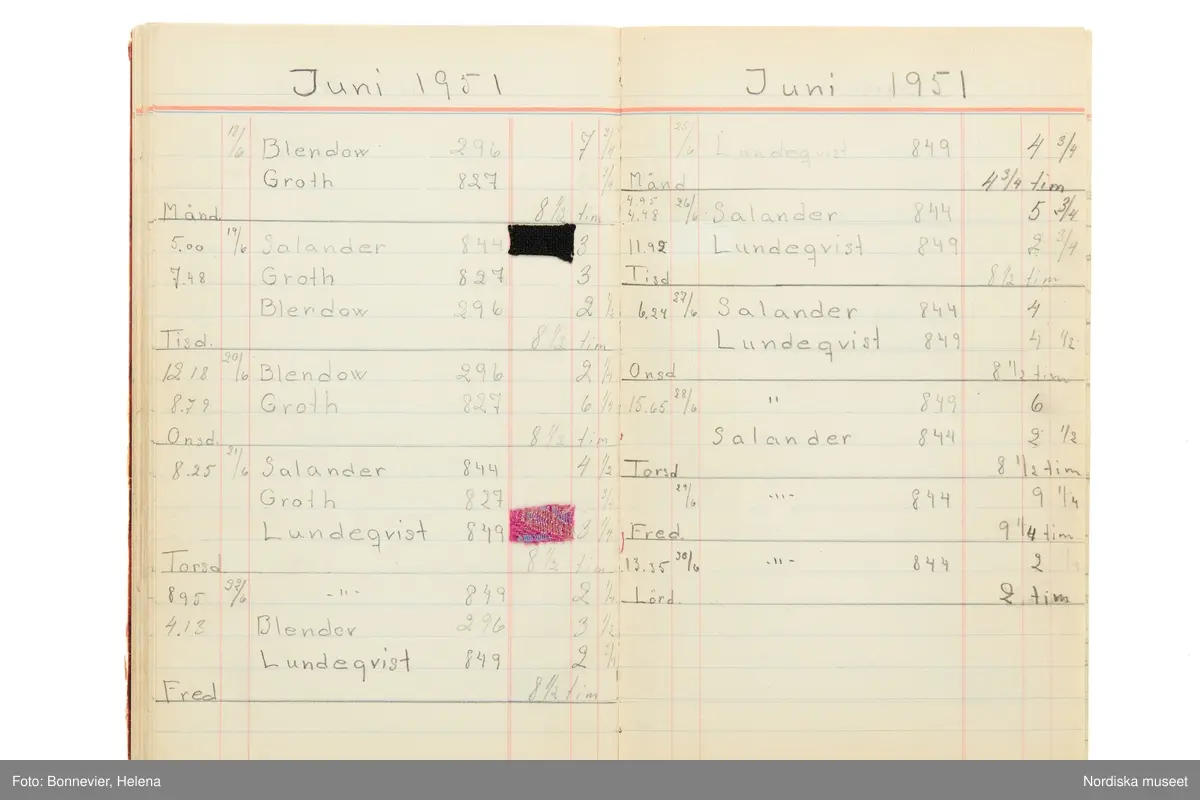 Juni 1951
18/6 Blendow 296 7 3/4
Groth 827 3/4
Månd 8 1/2 tim
5.00 19/6 Salander 844 3
7.48 Groth 827 3
Blendow 296 2 1/2
Tisd. 8 1/2 tim
12 18 20/6 Blendow 296 2 1/4
8.79 Groth 827 6 1/4
Onsd. 8 1/2 tim
8.25 21/6 Salander 844 4 1/2
Groth 827
Lundeqvist 849 3 1/4
Torsd 8 1/2 tim
895 22/6 -"- 849 2 1/4
4.13 Blender 296 3 1/2
Lundeqvist 849 2 3/4
Fred 8 1/2 tim
Juni 1951
25/6 Lundeqvist 849 4 3/4
Månd 4 3/4 tim
4.95
4.48 26/6 Salander 844 5 3/4
11.92 Lundeqvist 849 2 3/4
Tisd 8 1/2 tim
6.24 27/6 Salander 844 4
Lundeqvist 849 4 1/2
Onsd 8 1/2 tim
15.65 28/6 " 849 6
Salander 844 2 1/2
Torsd 8 1/2 tim
29/6 -"- 844 9 1/4
Fred. 9 1/4 tim
13.35 30/6 -"- 844 2
Lörd. 2 tim
Foto: Bonnevier, Helena
Nordiska museet